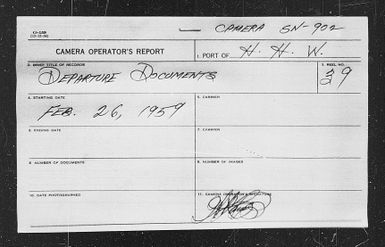 — CAMERA SN-902
CAMERA OPERATOR'S REPORT
1. PORT OF H. H. W.
2. BRIEF TITLE OF RECORDS
3. REEL NO.
DEPARTURE DOCUMENTS
9
4. STARTING DATE
5. CARRIER
FEB. 26, 1959
6. ENDING DATE
7. CARRIER
8. NUMBER OF DOCUMENTS
9. NUMBER OF IMAGES
10. DATE PHOTOGRAPHED
11. CAMERA OPERATOR'S SIGNATURE